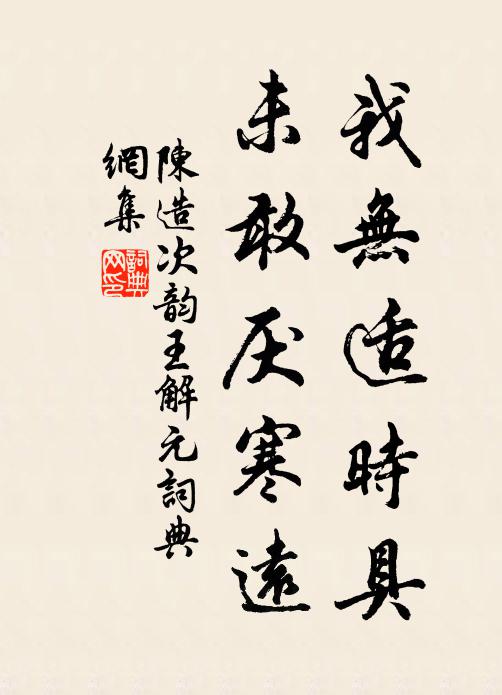 我無适時具
未敢厌寒遠
陳造次韵王解元詞典
網集
詞典网印